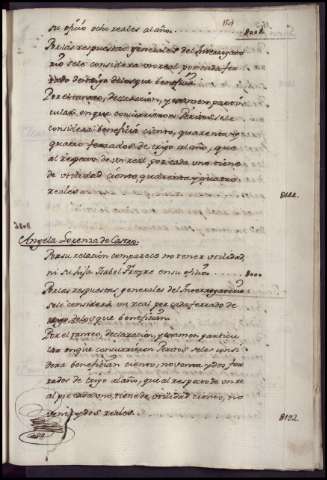 su oficio ocho reales al año.. 8008.
Por las respuestas generales del Interrogato
rio se le considera un real por cada fer
rado de trigo de los que beneficia
Por el tanteo, declaracion, y examen parti
cular, en que convinieron Peritos se le
considera beneficia ciento, quarenta y
quatro ferrados de trigo al año, que
al respecto de un real por cada uno tiene
de utilidad ciento, quarenta, y quatro
reales 8144.
Angela Lorenza de Castro.
Por su relacion comparece no tener utilidad,
ni su hija Isabel Freyre en su oficio.. 8000
Por las respuestas generales del Interrogatorio
se le considera un real por cada ferrado de
trigo de los que benefician
Por el tanteo, declaracion, y examen particu
lar en que convinieron Peritos se les consi
dera benefician ciento, noventa y dos fer
rados de trigo al año, que al respecto de un re
al por cada uno, tiene de utilidad ciento, no
venta y dos reales.. 8192.